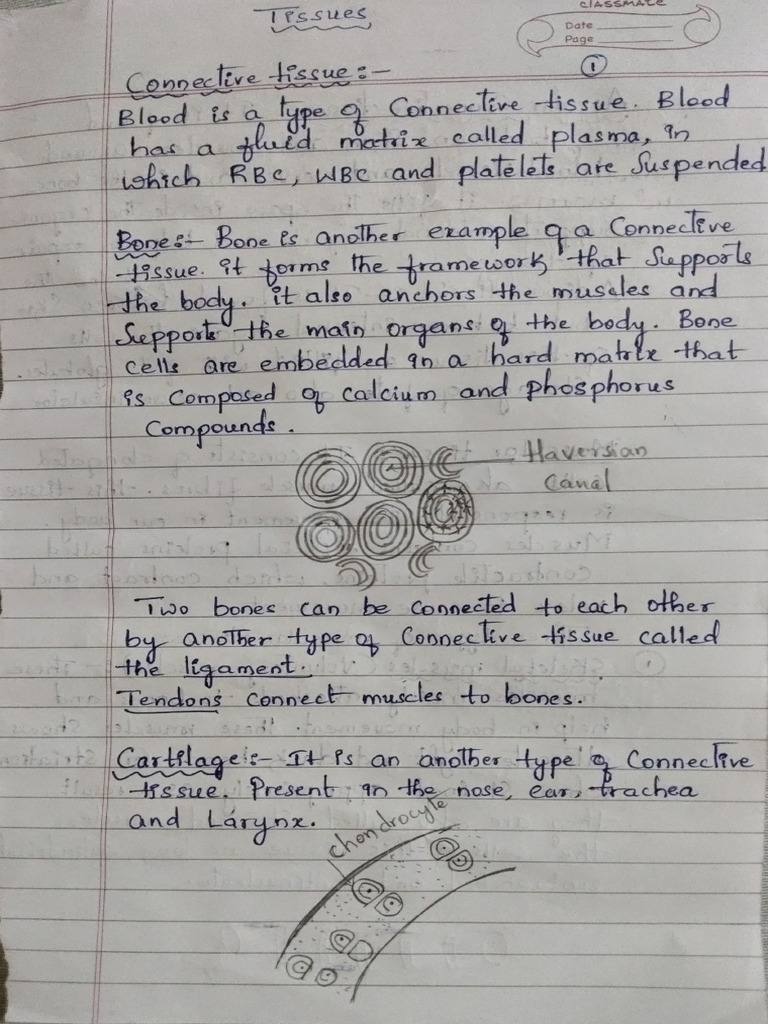 Tissues
CLASSMATE
Date
Page
1
Connective tissue:-
Blood is a type of Connective tissue. Blood
has a fluid matrix called plasma, in
which RBC, WBC and platelets are Suspended
Bone:- Bone is another example of a Connective
tissue. it forms the framework that Supports
the body. it also anchors the muscles and
Supports the main organs of the body. Bone
cells are embedded in a hard matrix that
is Composed of calcium and phosphorus
Compounds.
Haversian
Canal
Two bones can be connected to each other
by another type of Connective tissue called
the ligament.
Tendons connect muscles to bones.
Cartilage:- It is an another type of Connective
tissue. Present in the nose, ear, trachea
and Larynx.
chondrocyte